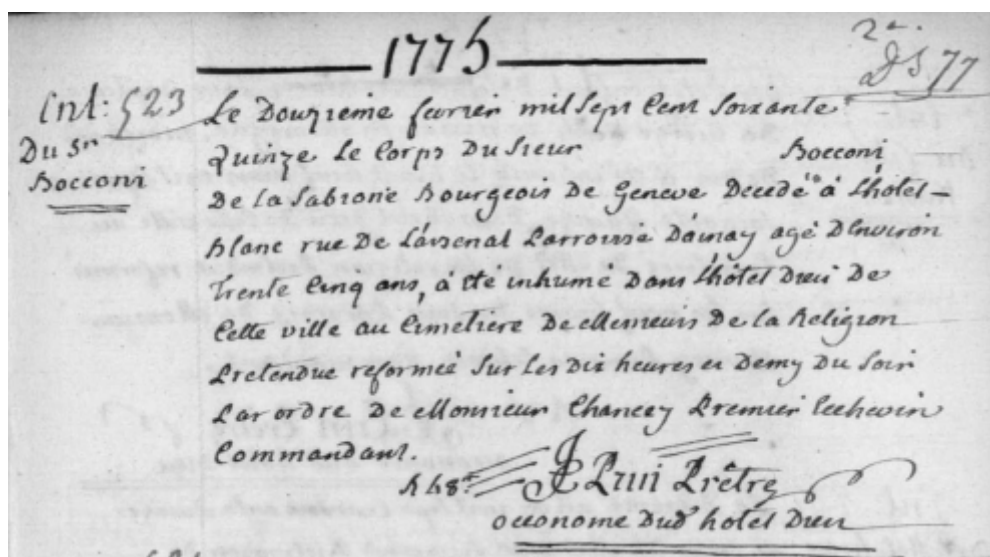 1775
2e.
77
Ent: 523
Du Sr
Bocconi
Le Douzieme fevrier mil sept Cent Soixante
Quinze Le Corps Du Sieur Bocconi
De la Sabronie Bourgeois De Geneve Decedé à L'hôtel
Blanc rue De L'arsenal Parroisse D'ainay agé D'Environ
Trente Cinq ans, à été inhumé Dans L'hôtel Dieu De
Cette ville au Cimetiere De Messieurs De la Religion
Pretendue reformée Sur Les Dix heures et Demy Du Soir
Par ordre De Monsieur Chancey Premier Echevin
Commandant.
Prêtre
oeconome Dud. hotel Dieu